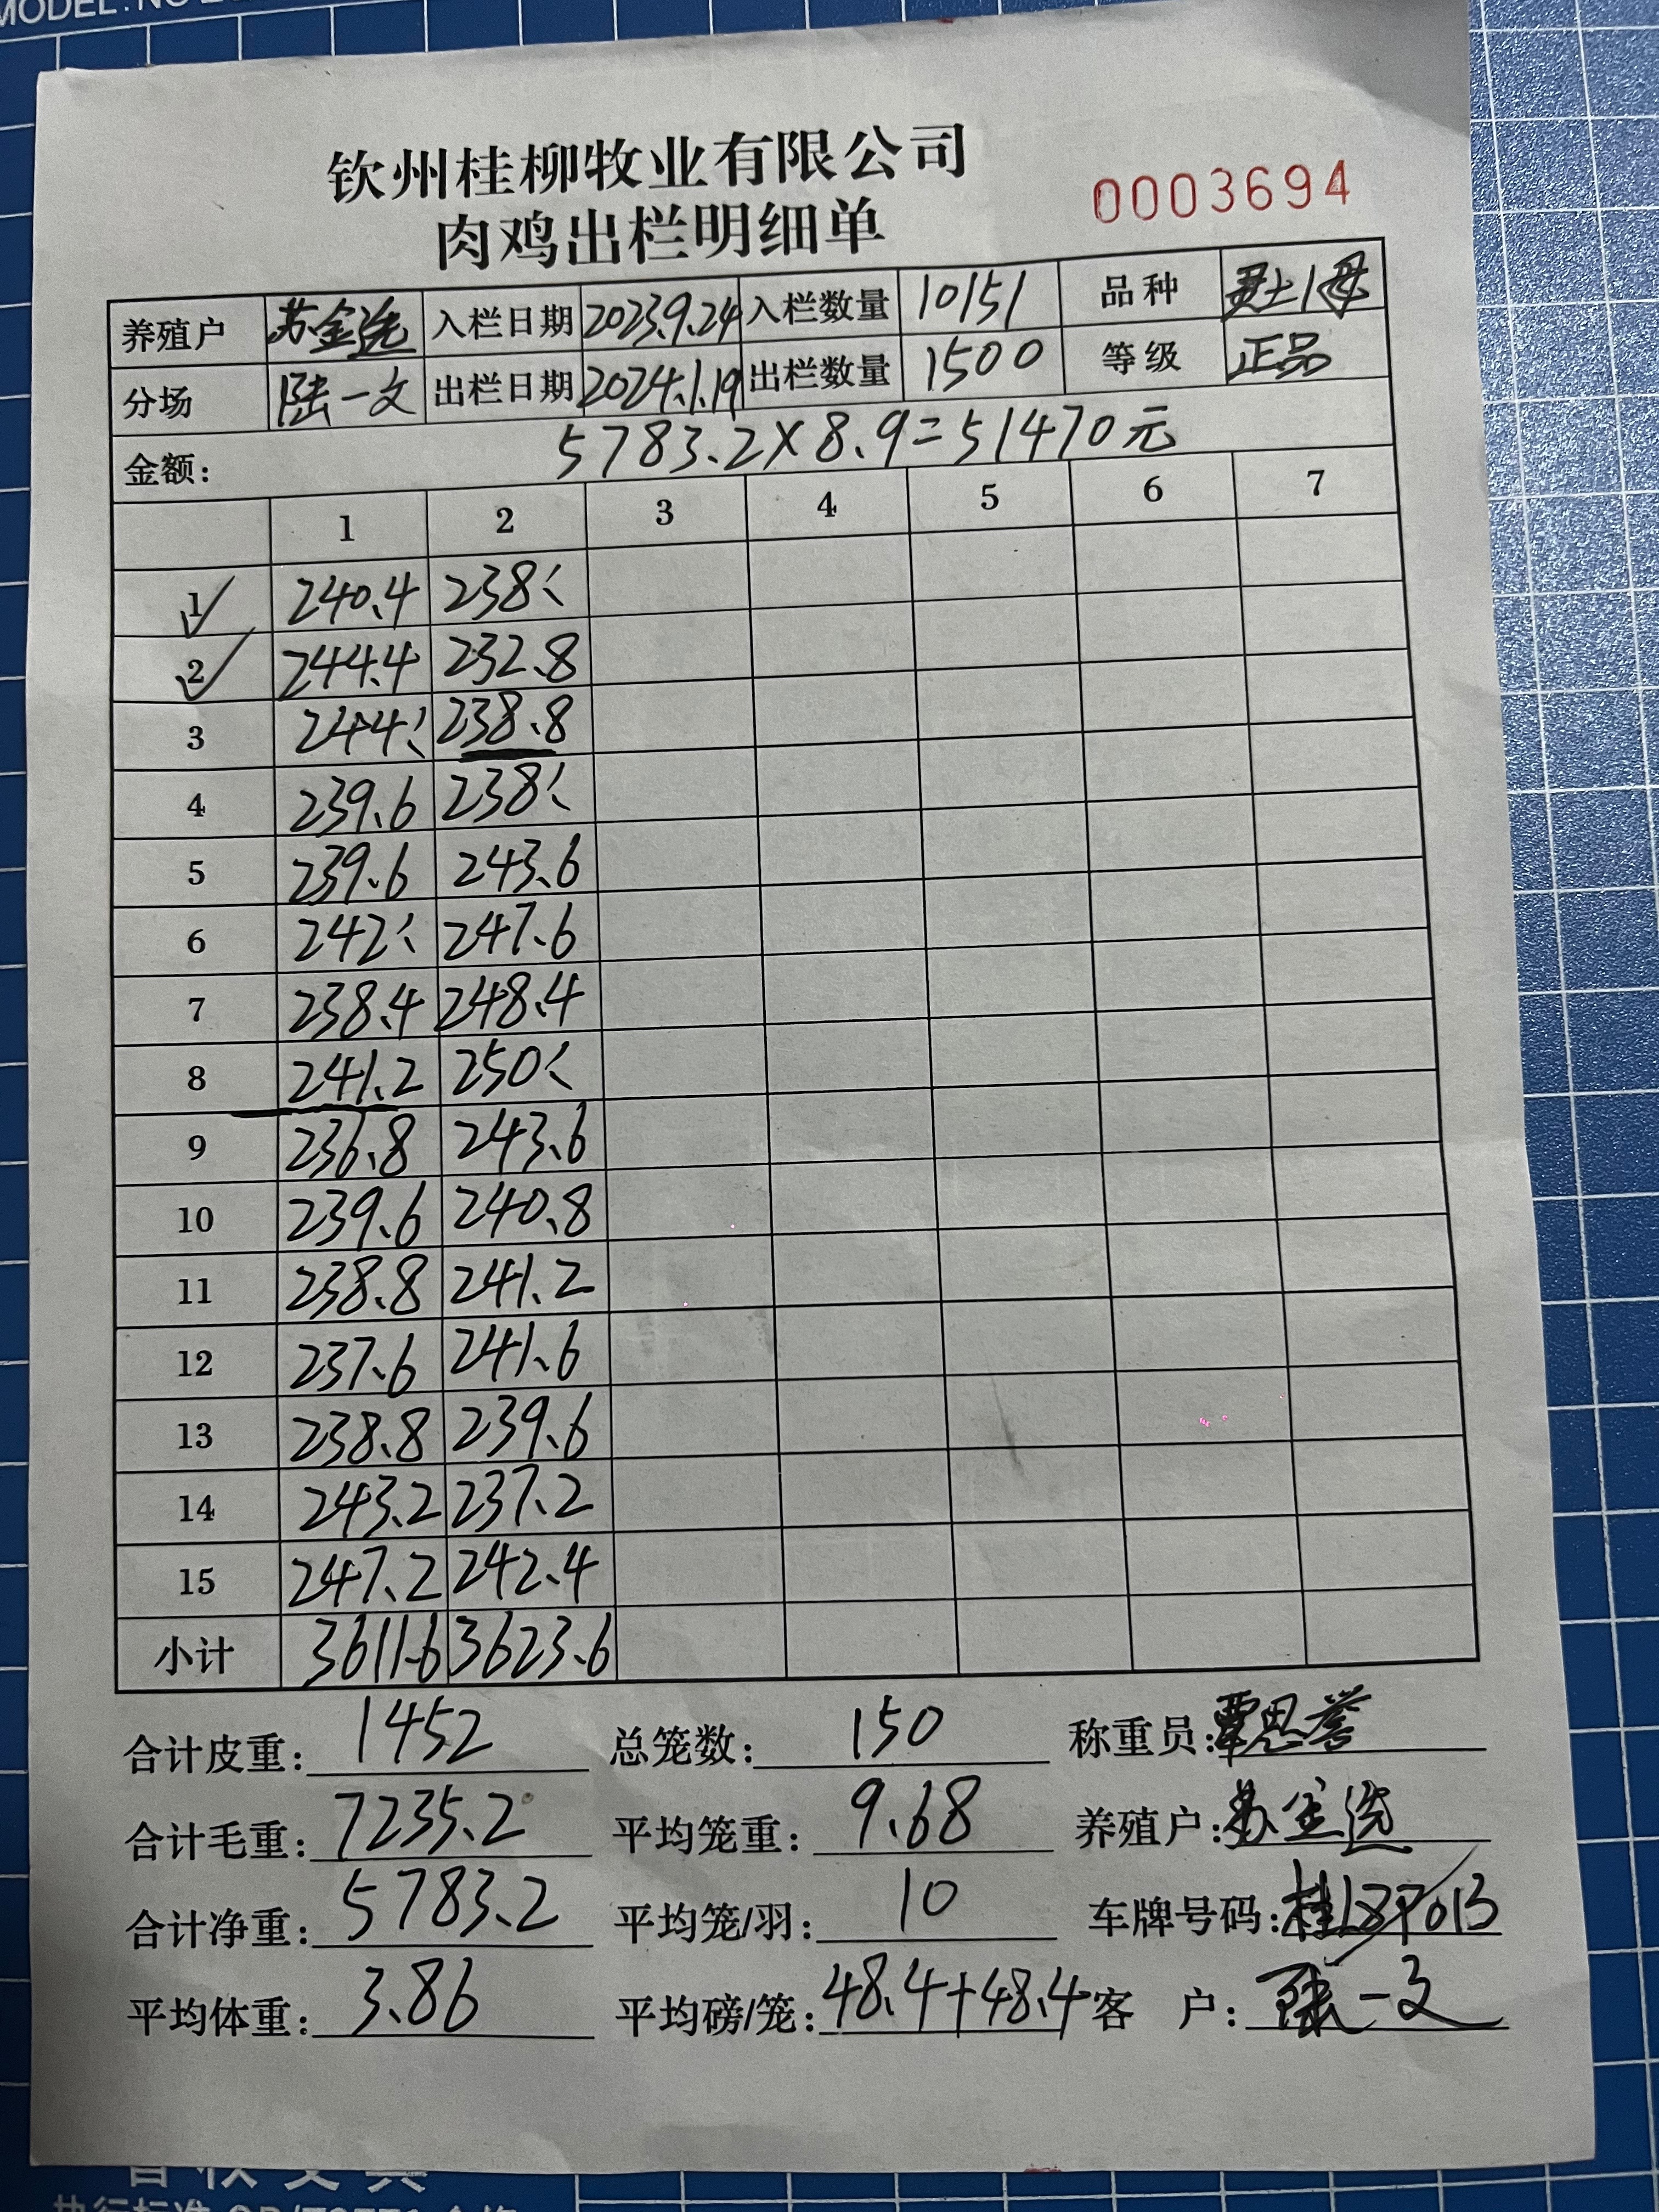 MODEL:NO
钦州桂柳牧业有限公司
肉鸡出栏明细单
0003694
养殖户 苏金选 入栏日期 2023.9.24 入栏数量 10151 品种
分场 陆一文 出栏日期 2024.1.19 出栏数量 1500 等级 正品
金额: 5783.2×8.9=51470元
1 2 3 4 5 6 7
1 240.4 238、
2 244.4 232.8
3 244、 238.8
4 239.6 238、
5 239.6 243.6
6 242、 247.6
7 238.4 248.4
8 241.2 250、
9 236.8 243.6
10 239.6 240.8
11 238.8 241.2
12 237.6 241.6
13 238.8 239.6
14 243.2 237.2
15 247.2 242.4
小计 3611.6 3623.6
合计皮重: 1452 总笼数: 150 称重员: 覃思誉
合计毛重: 7235.2 平均笼重: 9.68 养殖户: 苏金选
合计净重: 5783.2 平均笼/羽: 10 车牌号码:
平均体重: 3.86 平均磅/笼: 48.4+48.4 客 户: 陆一文